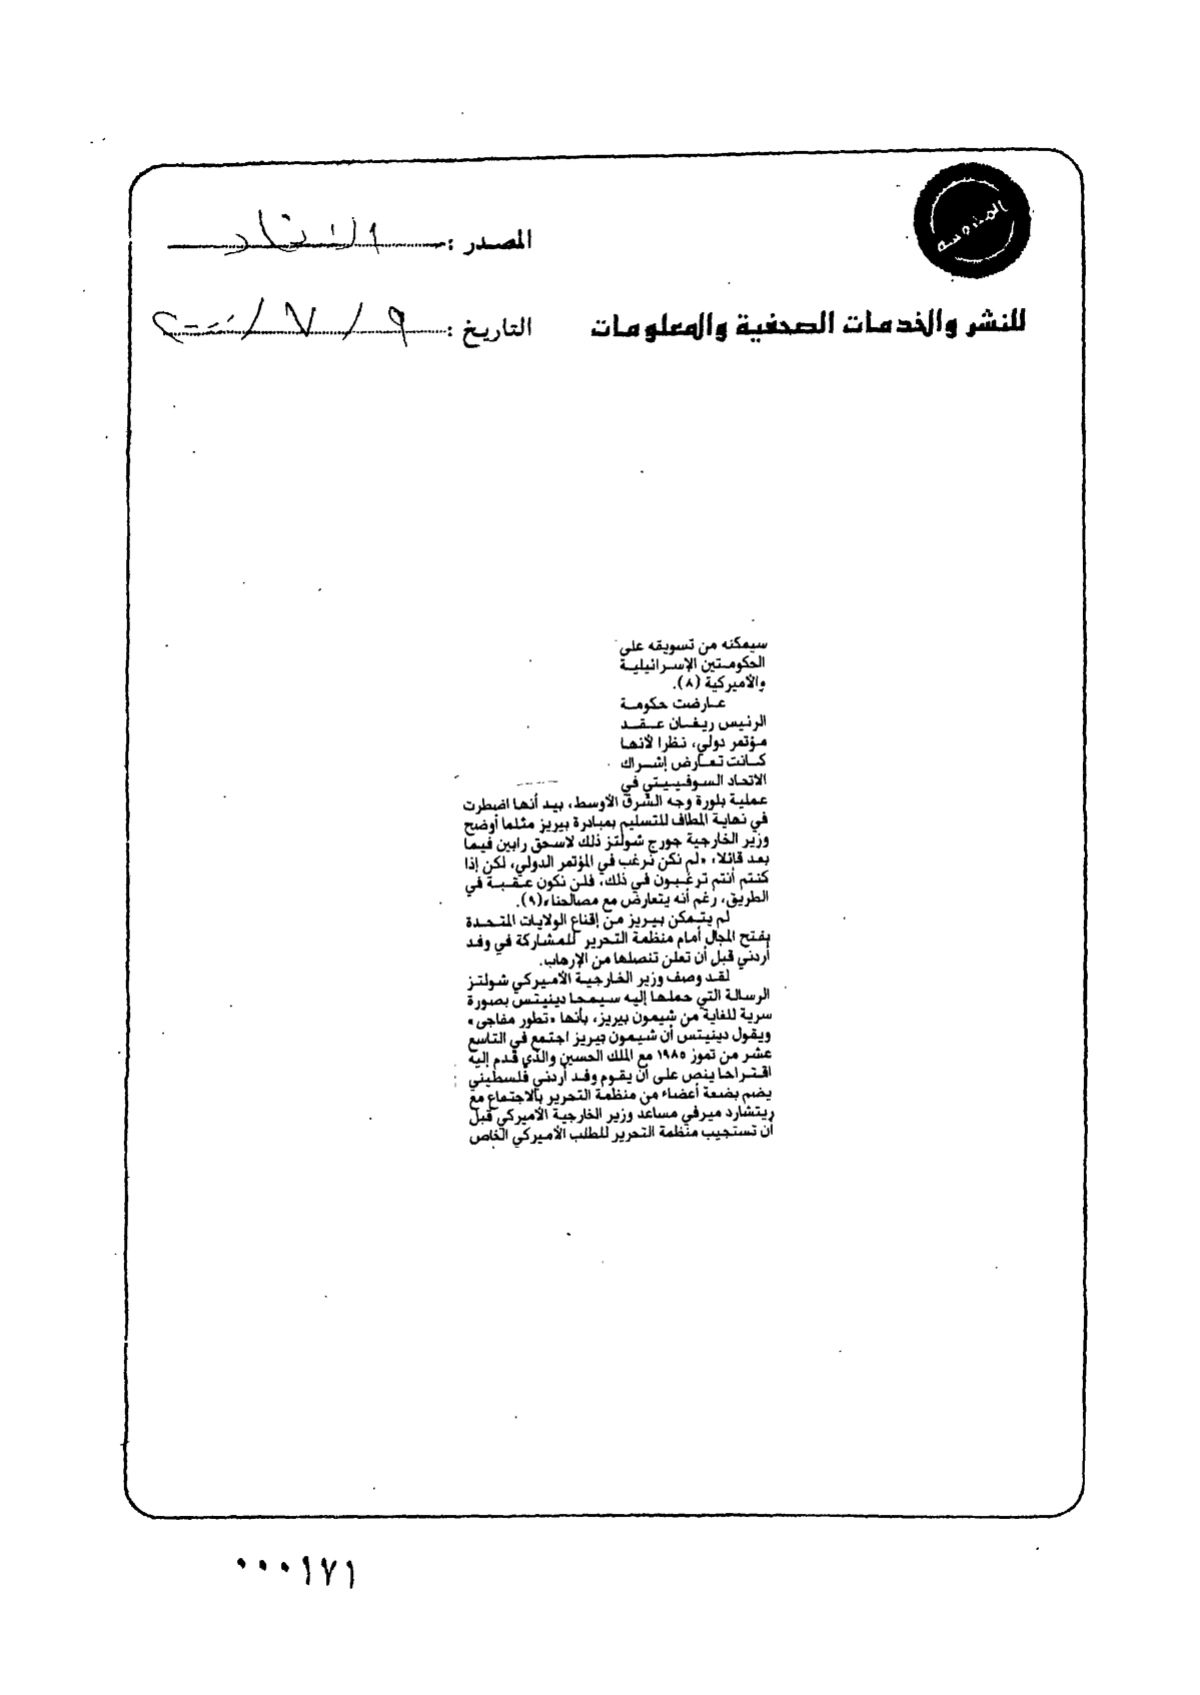 المصدر : الاتحاد
للنشر والخدمات الصحفية والمعلومات
التاريخ : ٩ / ٧ / ٢٠٠٠
سيمكنه من تسويقه على
الحكومتين الإسرائيلية
والأميركية (٨).
عارضت حكومة
الرئيس ريغان عقد
مؤتمر دولي، نظرا لأنها
كانت تعارض إشراك
الاتحاد السوفييتي في
عملية بلورة وجه الشرق الأوسط، بيد أنها اضطرت
في نهاية المطاف للتسليم بمبادرة بيريز مثلما أوضح
وزير الخارجية جورج شولتز ذلك لاسحق رابين فيما
بعد قائلا: «لم نكن نرغب في المؤتمر الدولي، لكن إذا
كنتم أنتم ترغبون في ذلك، فلن نكون عقبة في
الطريق، رغم أنه يتعارض مع مصالحنا»(٩).
لم يتمكن بيريز من إقناع الولايات المتحدة
بفتح المجال أمام منظمة التحرير للمشاركة في وفد
أردني قبل أن تعلن تنصلها من الإرهاب.
لقد وصف وزير الخارجية الأميركي شولتز
الرسالة التي حملها إليه سيمحا دينيتس بصورة
سرية للغاية من شيمون بيريز، بأنها «تطور مفاجئ»
ويقول دينيتس أن شيمون بيريز اجتمع في التاسع
عشر من تموز ١٩٨٥ مع الملك الحسين والذي قدم إليه
اقتراحا ينص على أن يقوم وفد أردني فلسطيني
يضم بضعة أعضاء من منظمة التحرير بالاجتماع مع
ريتشارد ميرفي مساعد وزير الخارجية الأميركي قبل
أن تستجيب منظمة التحرير للطلب الأميركي الخاص
٠٠٠١٧١